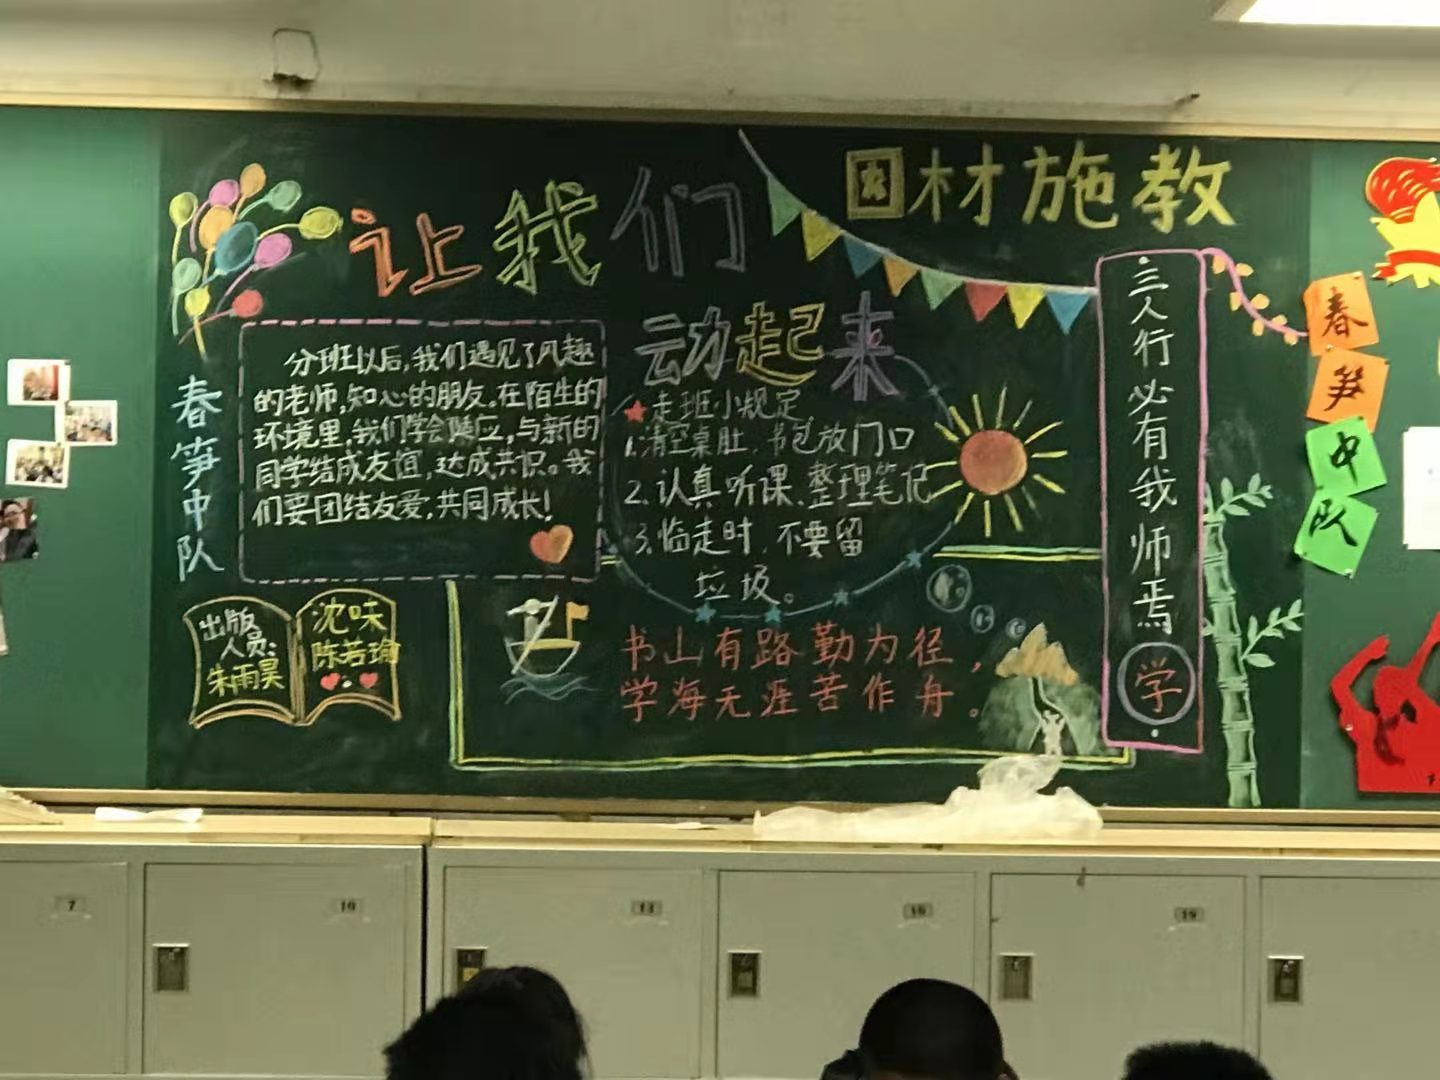 因材施教
让我们
动起来
春笋中队
分班以后,我们遇见了风趣
的老师,知心的朋友.在陌生的
环境里,我们学会适应,与新的
同学结成友谊,达成共识。我
们要团结友爱,共同成长!
走班小规定
1.清空桌肚.书包放门口
2.认真听课.整理笔记
3.临走时.不要留
垃圾。
出版
人员:
朱雨昊
沈味
陈若瑜
书山有路勤为径,
学海无涯苦作舟。
三人行必有我师焉
学
春
笋
中
队
7
10
13
16
19